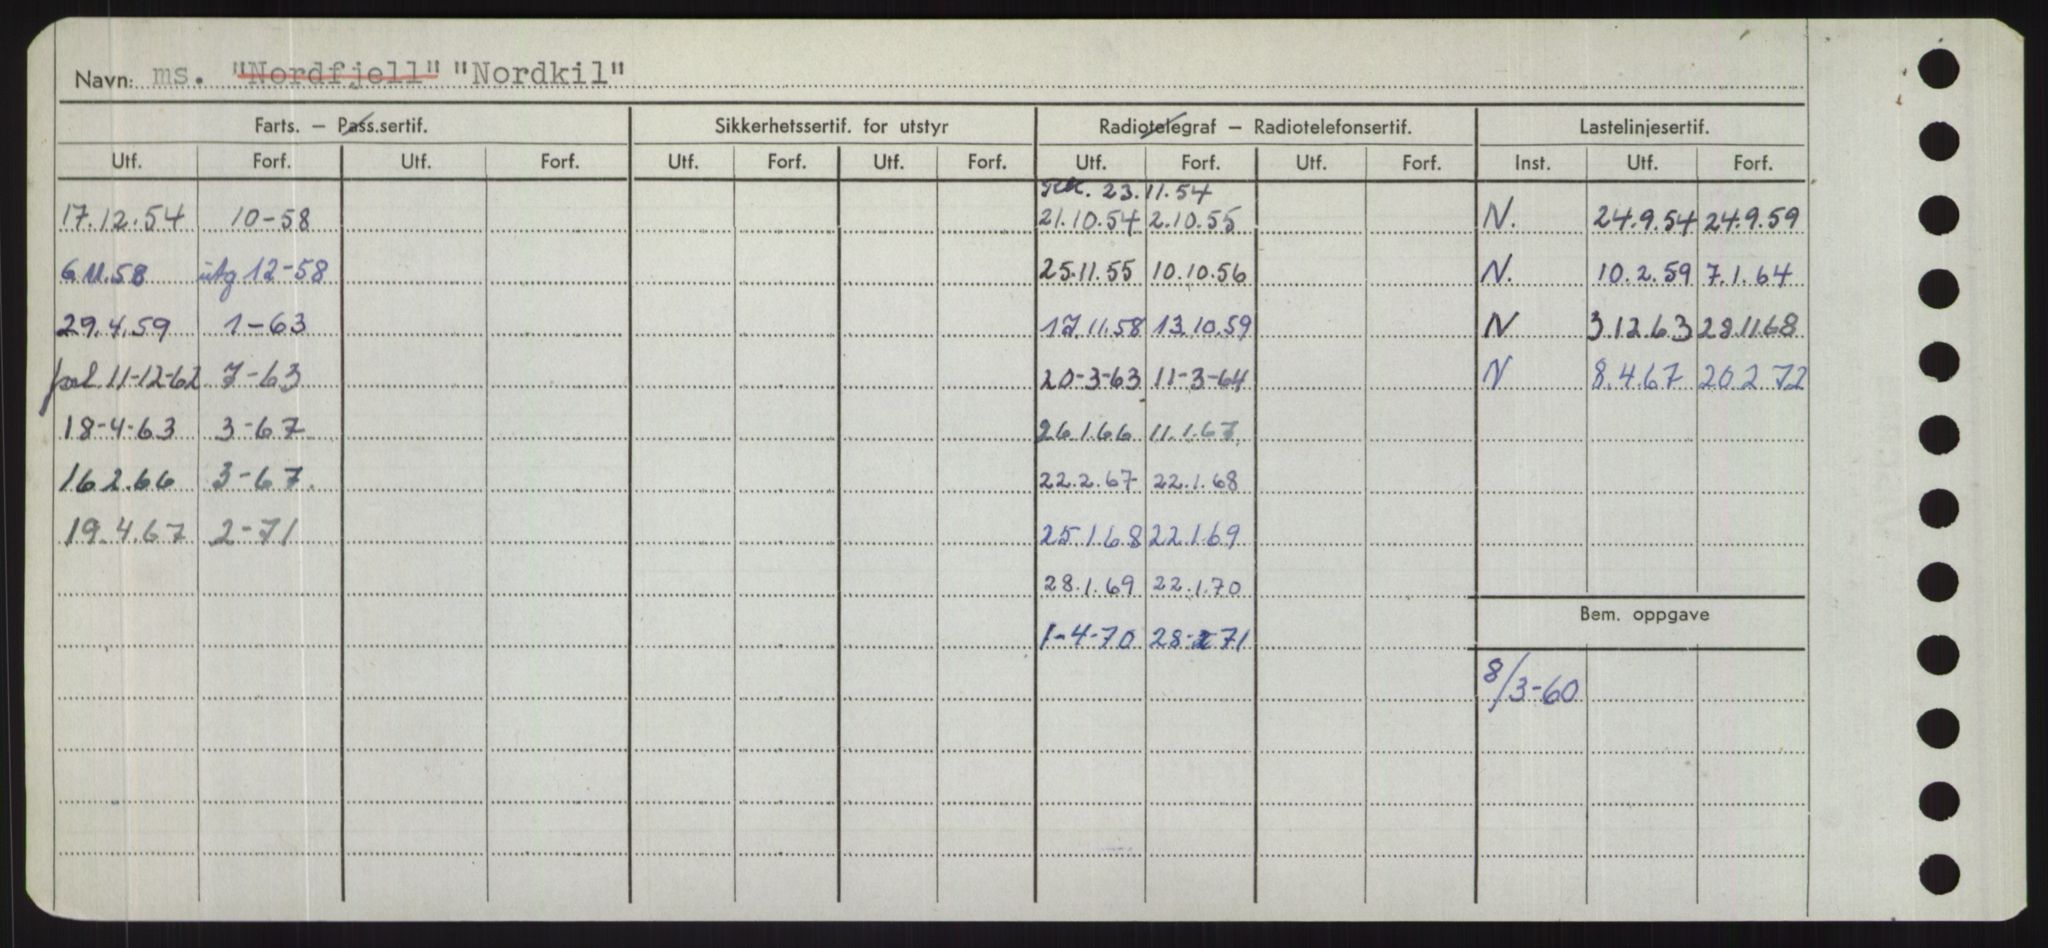 Navn: ms. "Nordfjell" "Nordkil"
Farts. – Pass.sertif. Sikkerhetssertif. for utstyr Radiotelegraf – Radiotelefonsertif. Lastelinjesertif.
Utf. Forf. Utf. Forf. Utf. Forf. Utf. Forf. Utf. Forf. Utf. Forf. Inst. Utf. Forf.
23.11.54
17.12.54 10-58 21.10.54 2.10.55 N. 24.9.54 24.9.59
6.11.58 utg 12-58 25.11.55 10.10.56 N. 10.2.59 7.1.64
29.4.59 1-63 17.11.58 13.10.59 N 3.12.63 28.11.68
11-12-62 7-63 20-3-63 11-3-64 N 8.4.67 20.2 72
18-4-63 3-67 26.1.66 11.1.67
16.2.66 3-67. 22.2.67 22.1.68
19.4.67 2-71 25.1.68 22.1.69
28.1.69 22.1.70
Bem. oppgave
1-4-70 28-2 71
8/3-60